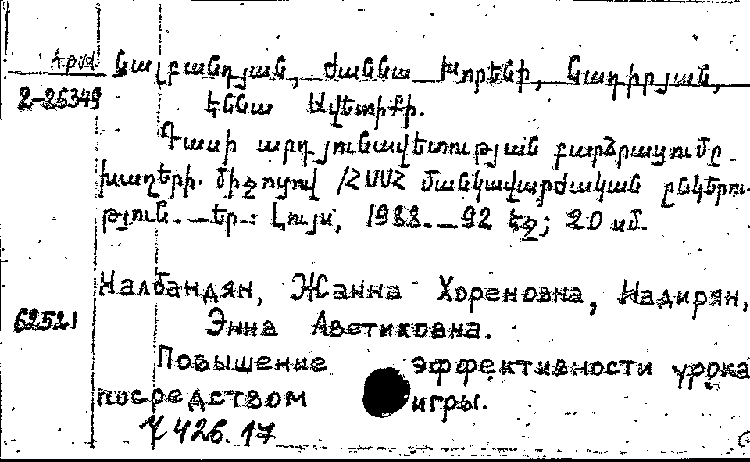 Նալբանդյան, Ժաննա Խորենի, Նադիրյան,
2-26349 Էննա Ավետիքի.
Դասի արդյունավետության բարձրացումը
խաղերի միջոցով /ՀՍՍՀ մանկավարժական ընկերու-
թյուն.—Եր.: Լույս, 1988.—92 էջ; 20 սմ.
Налбандян, Жанна Хореновна, Надирян,
62521 Энна Аветиковна.
Повышение эффективности урока
посредством игры.
Ч 426.17